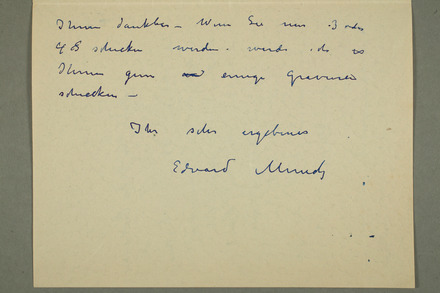 Ihnen dankbar – Wenn Sie mir 3 oder
4 schicken werden. werde ich
Ihnen gern einige Gravuren
schicken –
Ihr sehr ergebener
Edvard Munch